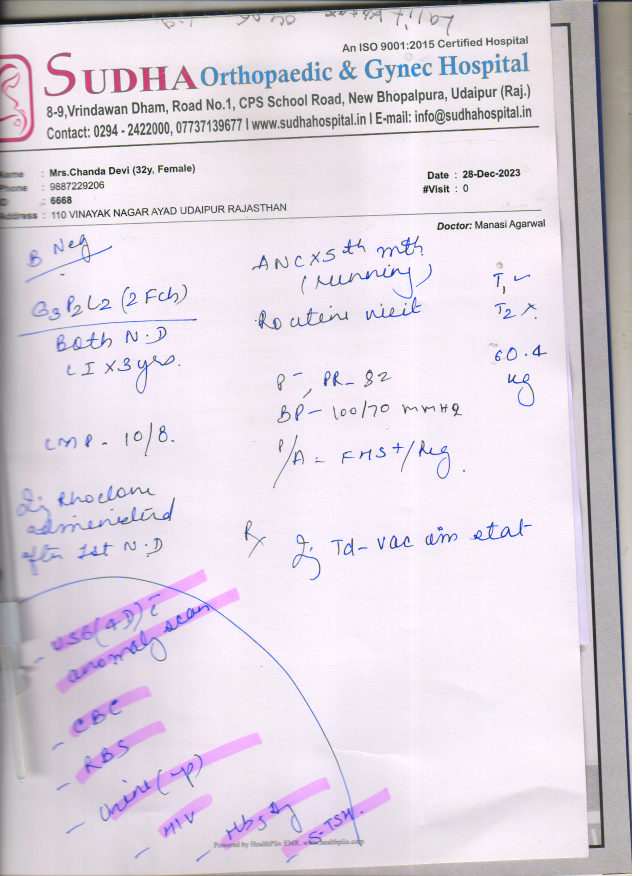 An ISO 9001:2015 Certified Hospital
SUDHA Orthopaedic & Gynec Hospital
8-9,Vrindawan Dham, Road No.1, CPS School Road, New Bhopalpura, Udaipur (Raj.)
Contact: 0294 - 2422000, 07737139677 I www.sudhahospital.in I E-mail: info@sudhahospital.in
Name : Mrs.Chanda Devi (32y, Female)
Phone : 9887229206
ID : 6668
Address : 110 VINAYAK NAGAR AYAD UDAIPUR RAJASTHAN
Date : 28-Dec-2023
#Visit : 0
Doctor: Manasi Agarwal
B Neg
G3P2L2 (2 Fch)
Both N.D
LI x 3 yrs.
LMP - 10/8.
Inj Rhoclone
administered
after 1st N.D
ANC x 5th mth
(running)
Routine visit
P- , PR- 82
BP- 100/70 mmHg
P/A = FHS+/Reg.
T1 ✓
T2 x.
60.4
kg
Rx Inj Td-vac aim stat
- USG(4D) c̄
anomaly scan
- CBC
- RBS
- Urine(up)
- HIV
- HbsAg
- S-TSH.
Powered by HealthPlix EMR. www.healthplix.com